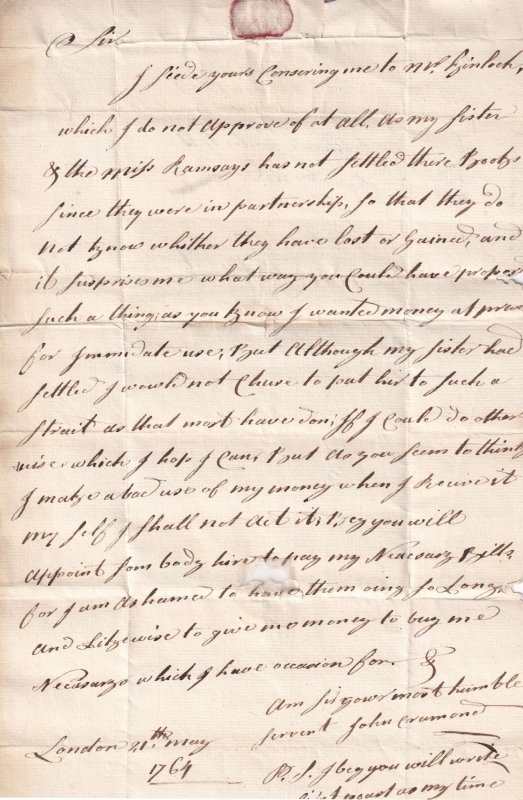 Sir
I siede yours Consering me to Mr. Kinloch,
which I do not approve of at all, as my sister
& the Miss Ramsays has not settled there Books
since they were in partnership, so that they do
not know whither they have lost or Gained, and
it surprises me what way you Could have propos
such a thing, as you know I wanted money at pres
for Immidate use; But although my sister had
settled I would not Chuse to put hir to such a
strait as that most have don; If I could do other
wise which I hop I Can; But as you seem to think
I make a bad use of my money when I Receive it
my self I shall not act it; Beg you will
appoint som body hire to pay my Necesary Bills
for I am ashamed to have them oing so Long
and Likewise to give me money to buy me
Necesarys which I have occasion for. &
Am Sir your most humble
servent John Cramond
London 21th May
1764
P. S. I beg you will write
post as my time